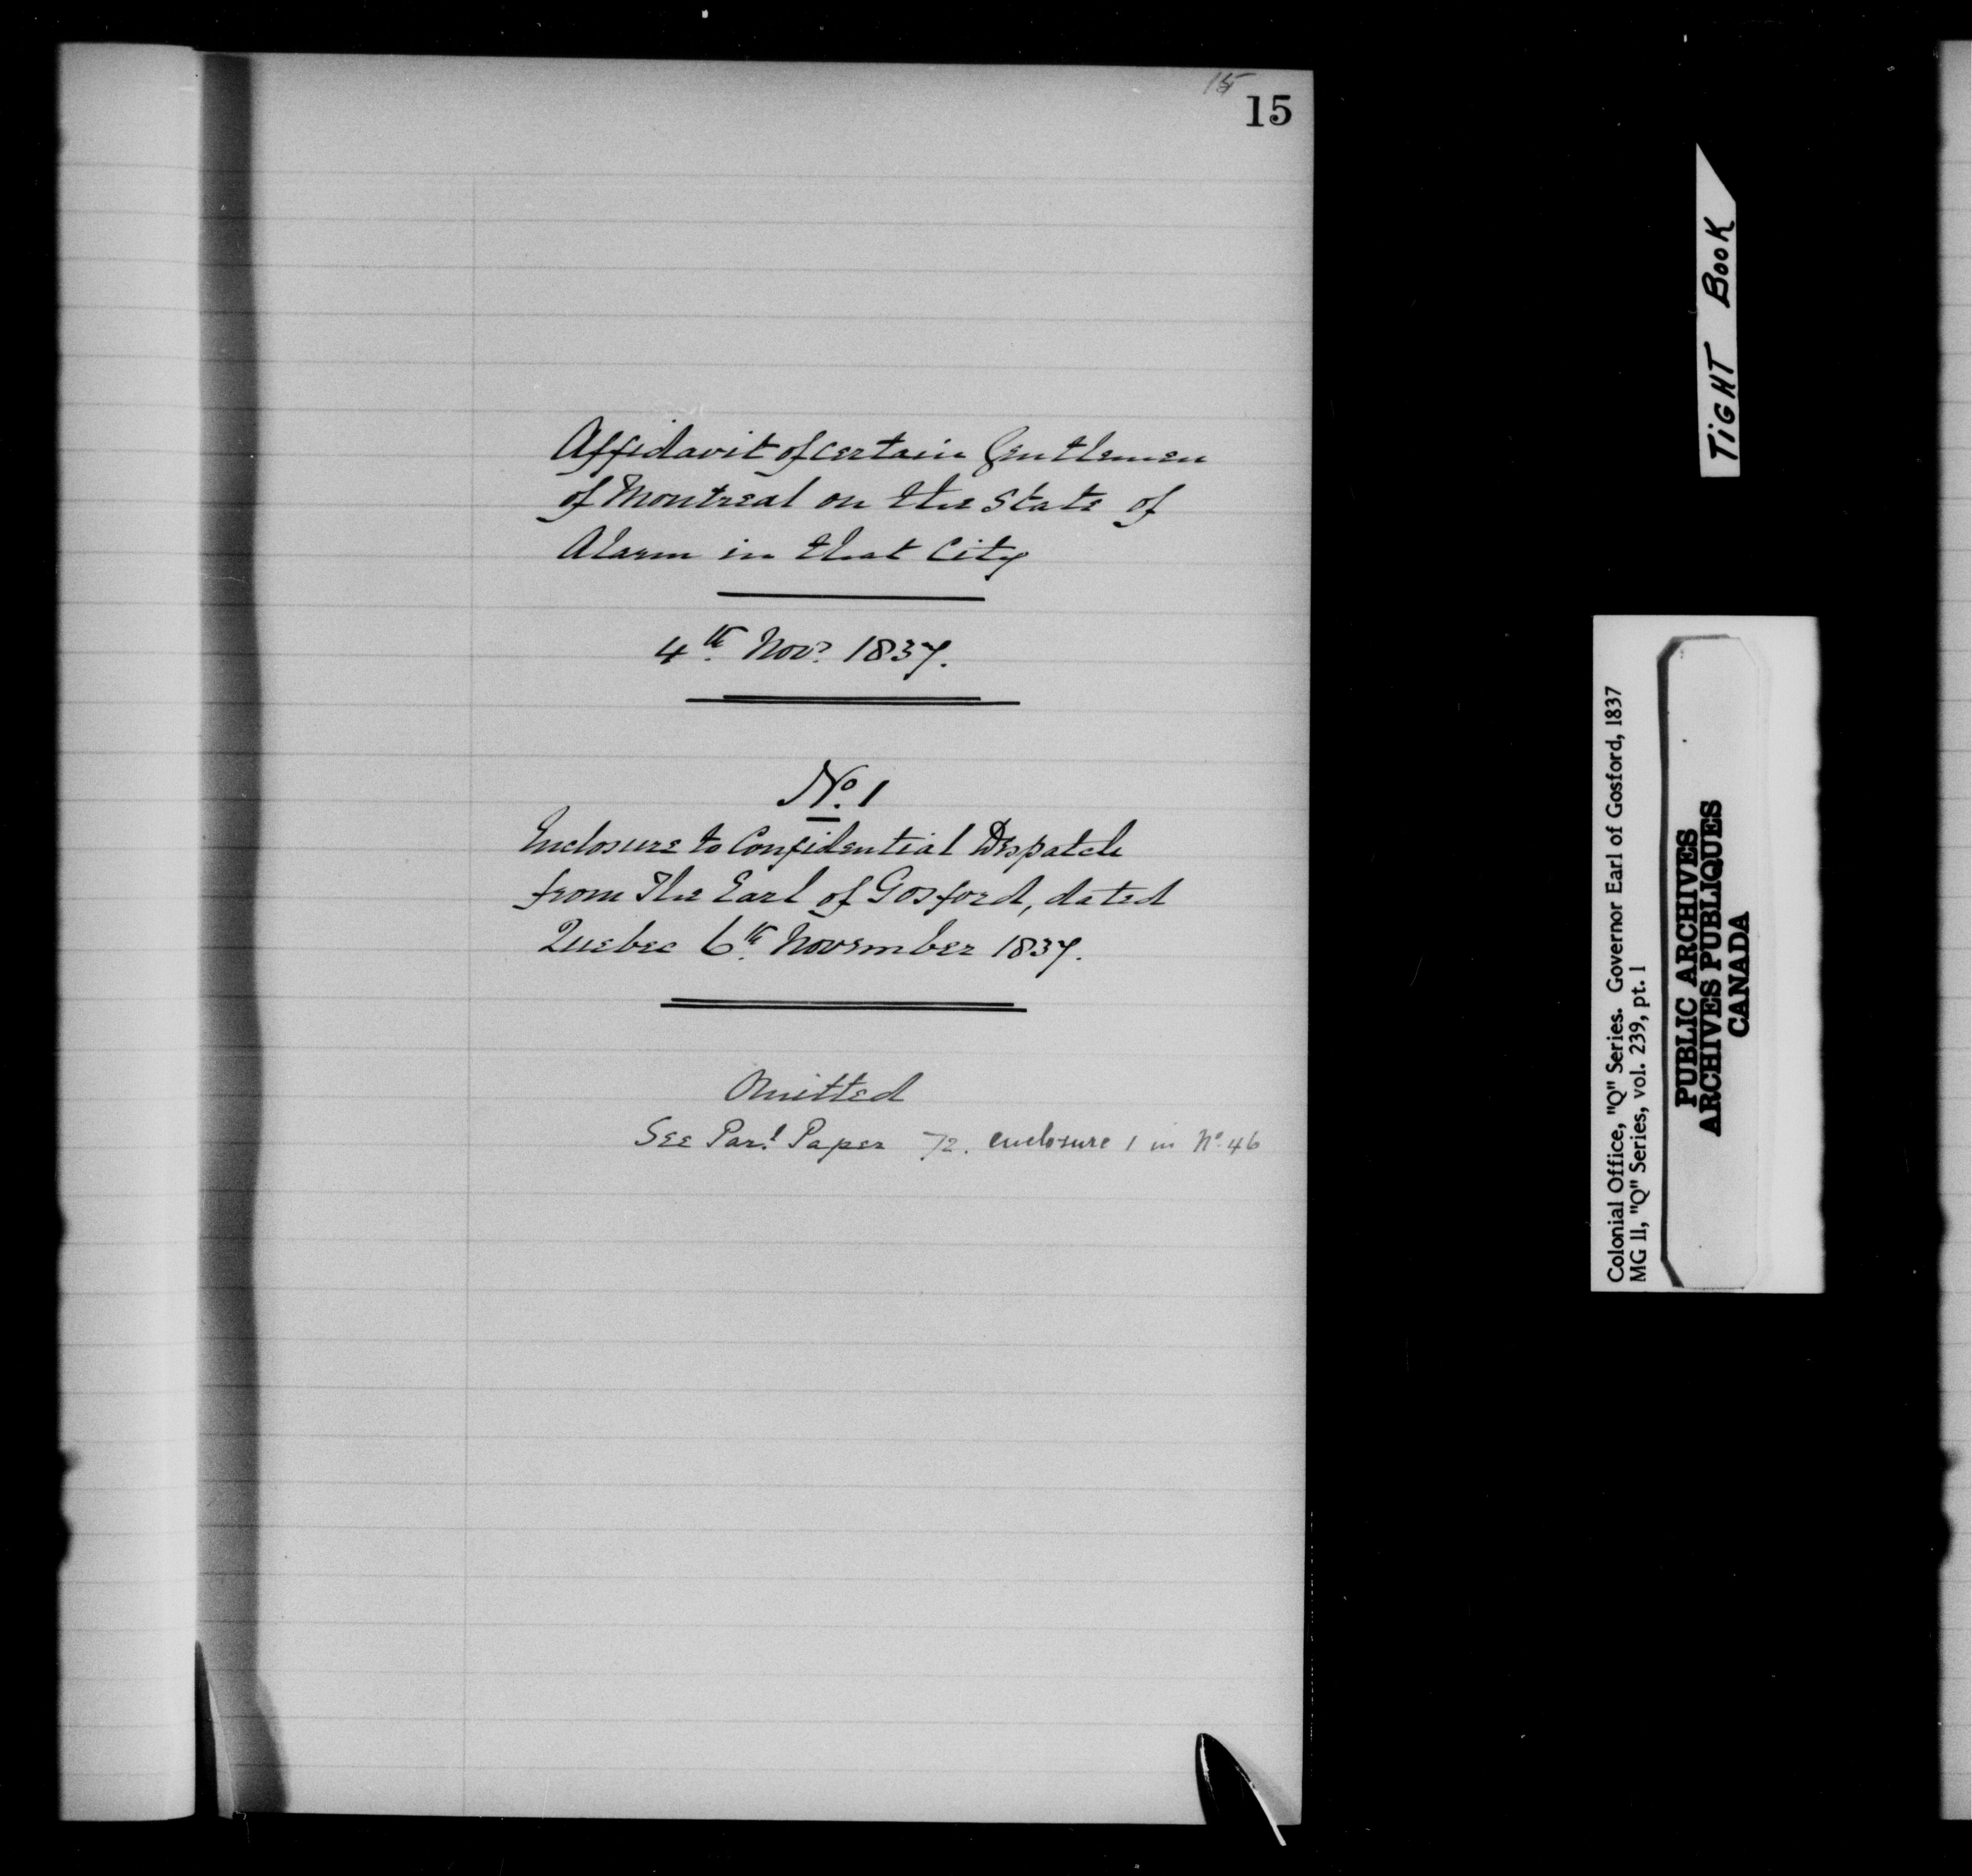 15
15
Affidavit of certain Gentlemen
of Montreal on the State of
Alarm in that City
4th Novr 1837.
No. 1
Inclosure to Confidential Despatch
from The Earl of Gosford, dated
Quebec 6th November 1837.
Omitted
See Parl Paper 72. enclosure 1 in No. 46
TIGHT BOOK
Colonial Office, "Q" Series. Governor Earl of Gosford, 1837
MG 11, "Q" Series, vol. 239, pt. 1
PUBLIC ARCHIVES
ARCHIVES PUBLIQUES
CANADA